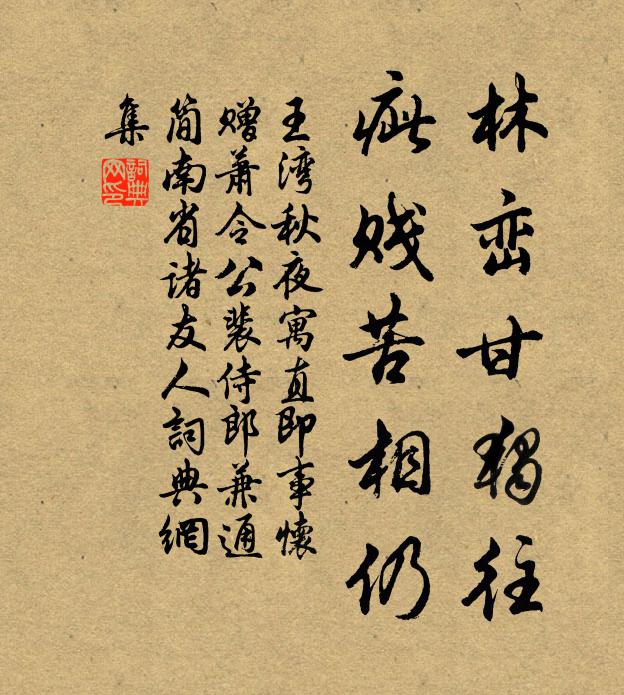 林峦甘独往
疵贱苦相仍
王湾秋夜寓直即事怀
赠萧令公裴侍郎兼通
简南省诸友人詞典網
集
詞典网印